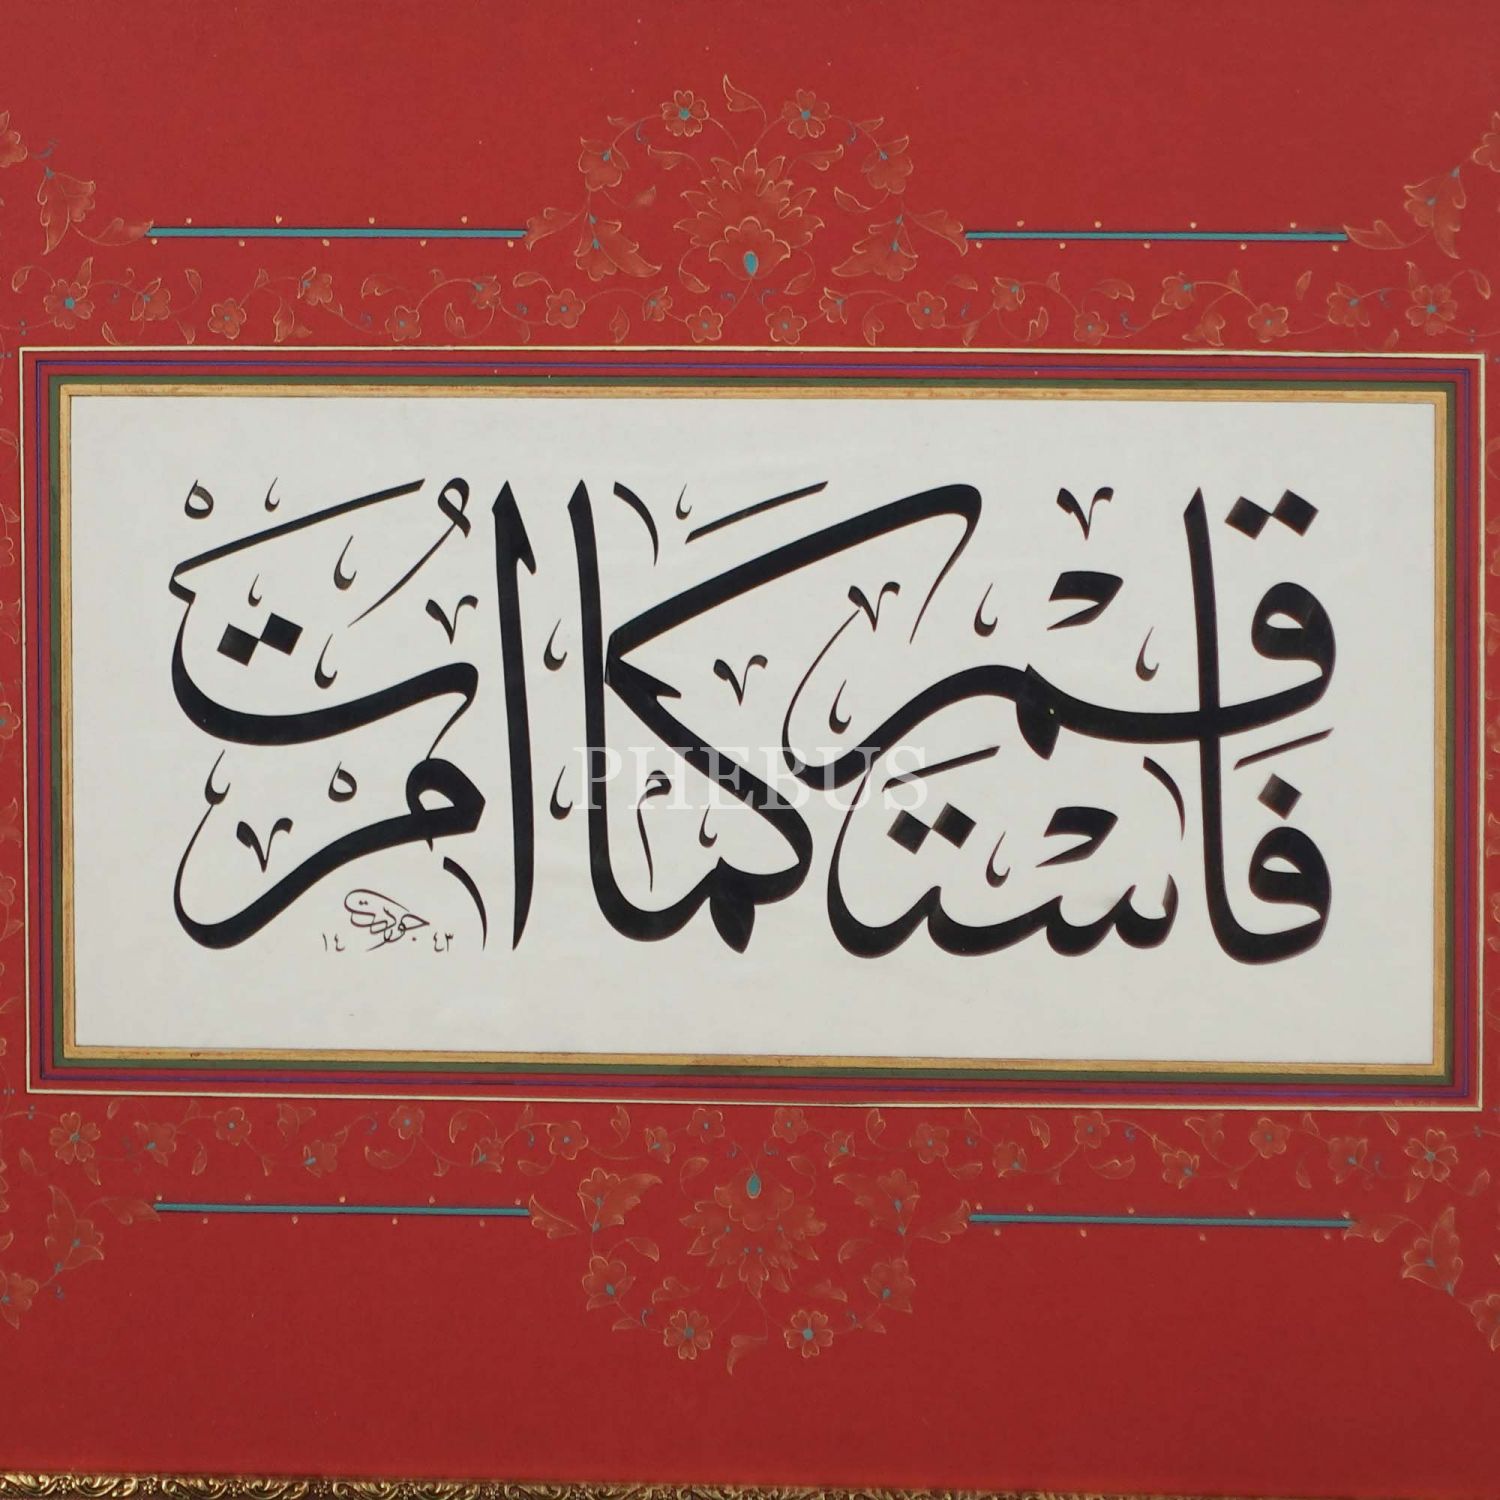 فَاسْتَقِمْ كَمَا أُمِرْتَ
جودت
١٤٤٣
PHEBUS